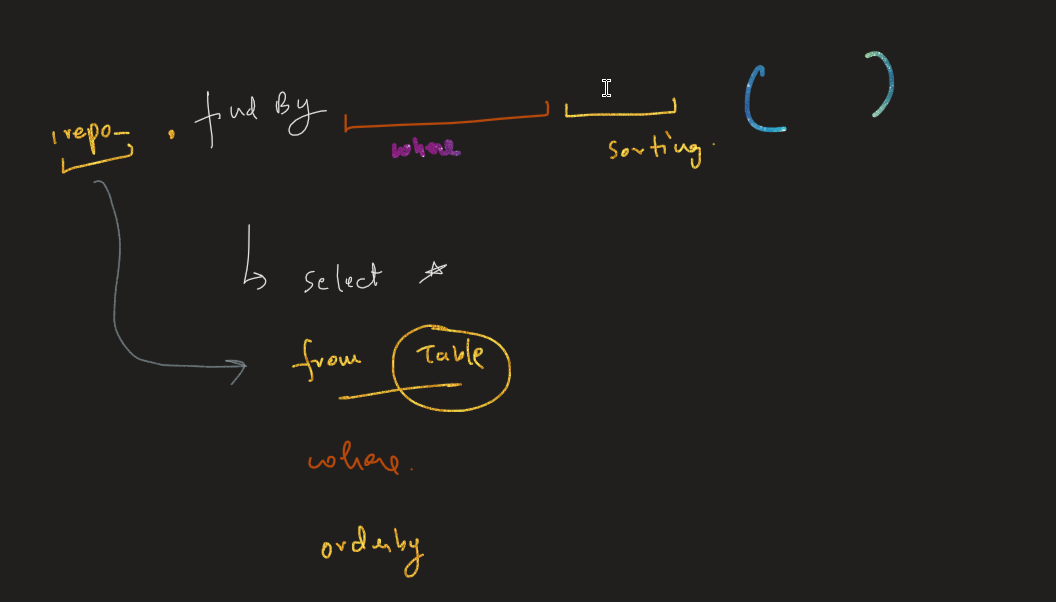 repo . find By ( )
where sorting.
select *
from Table
where.
orderby